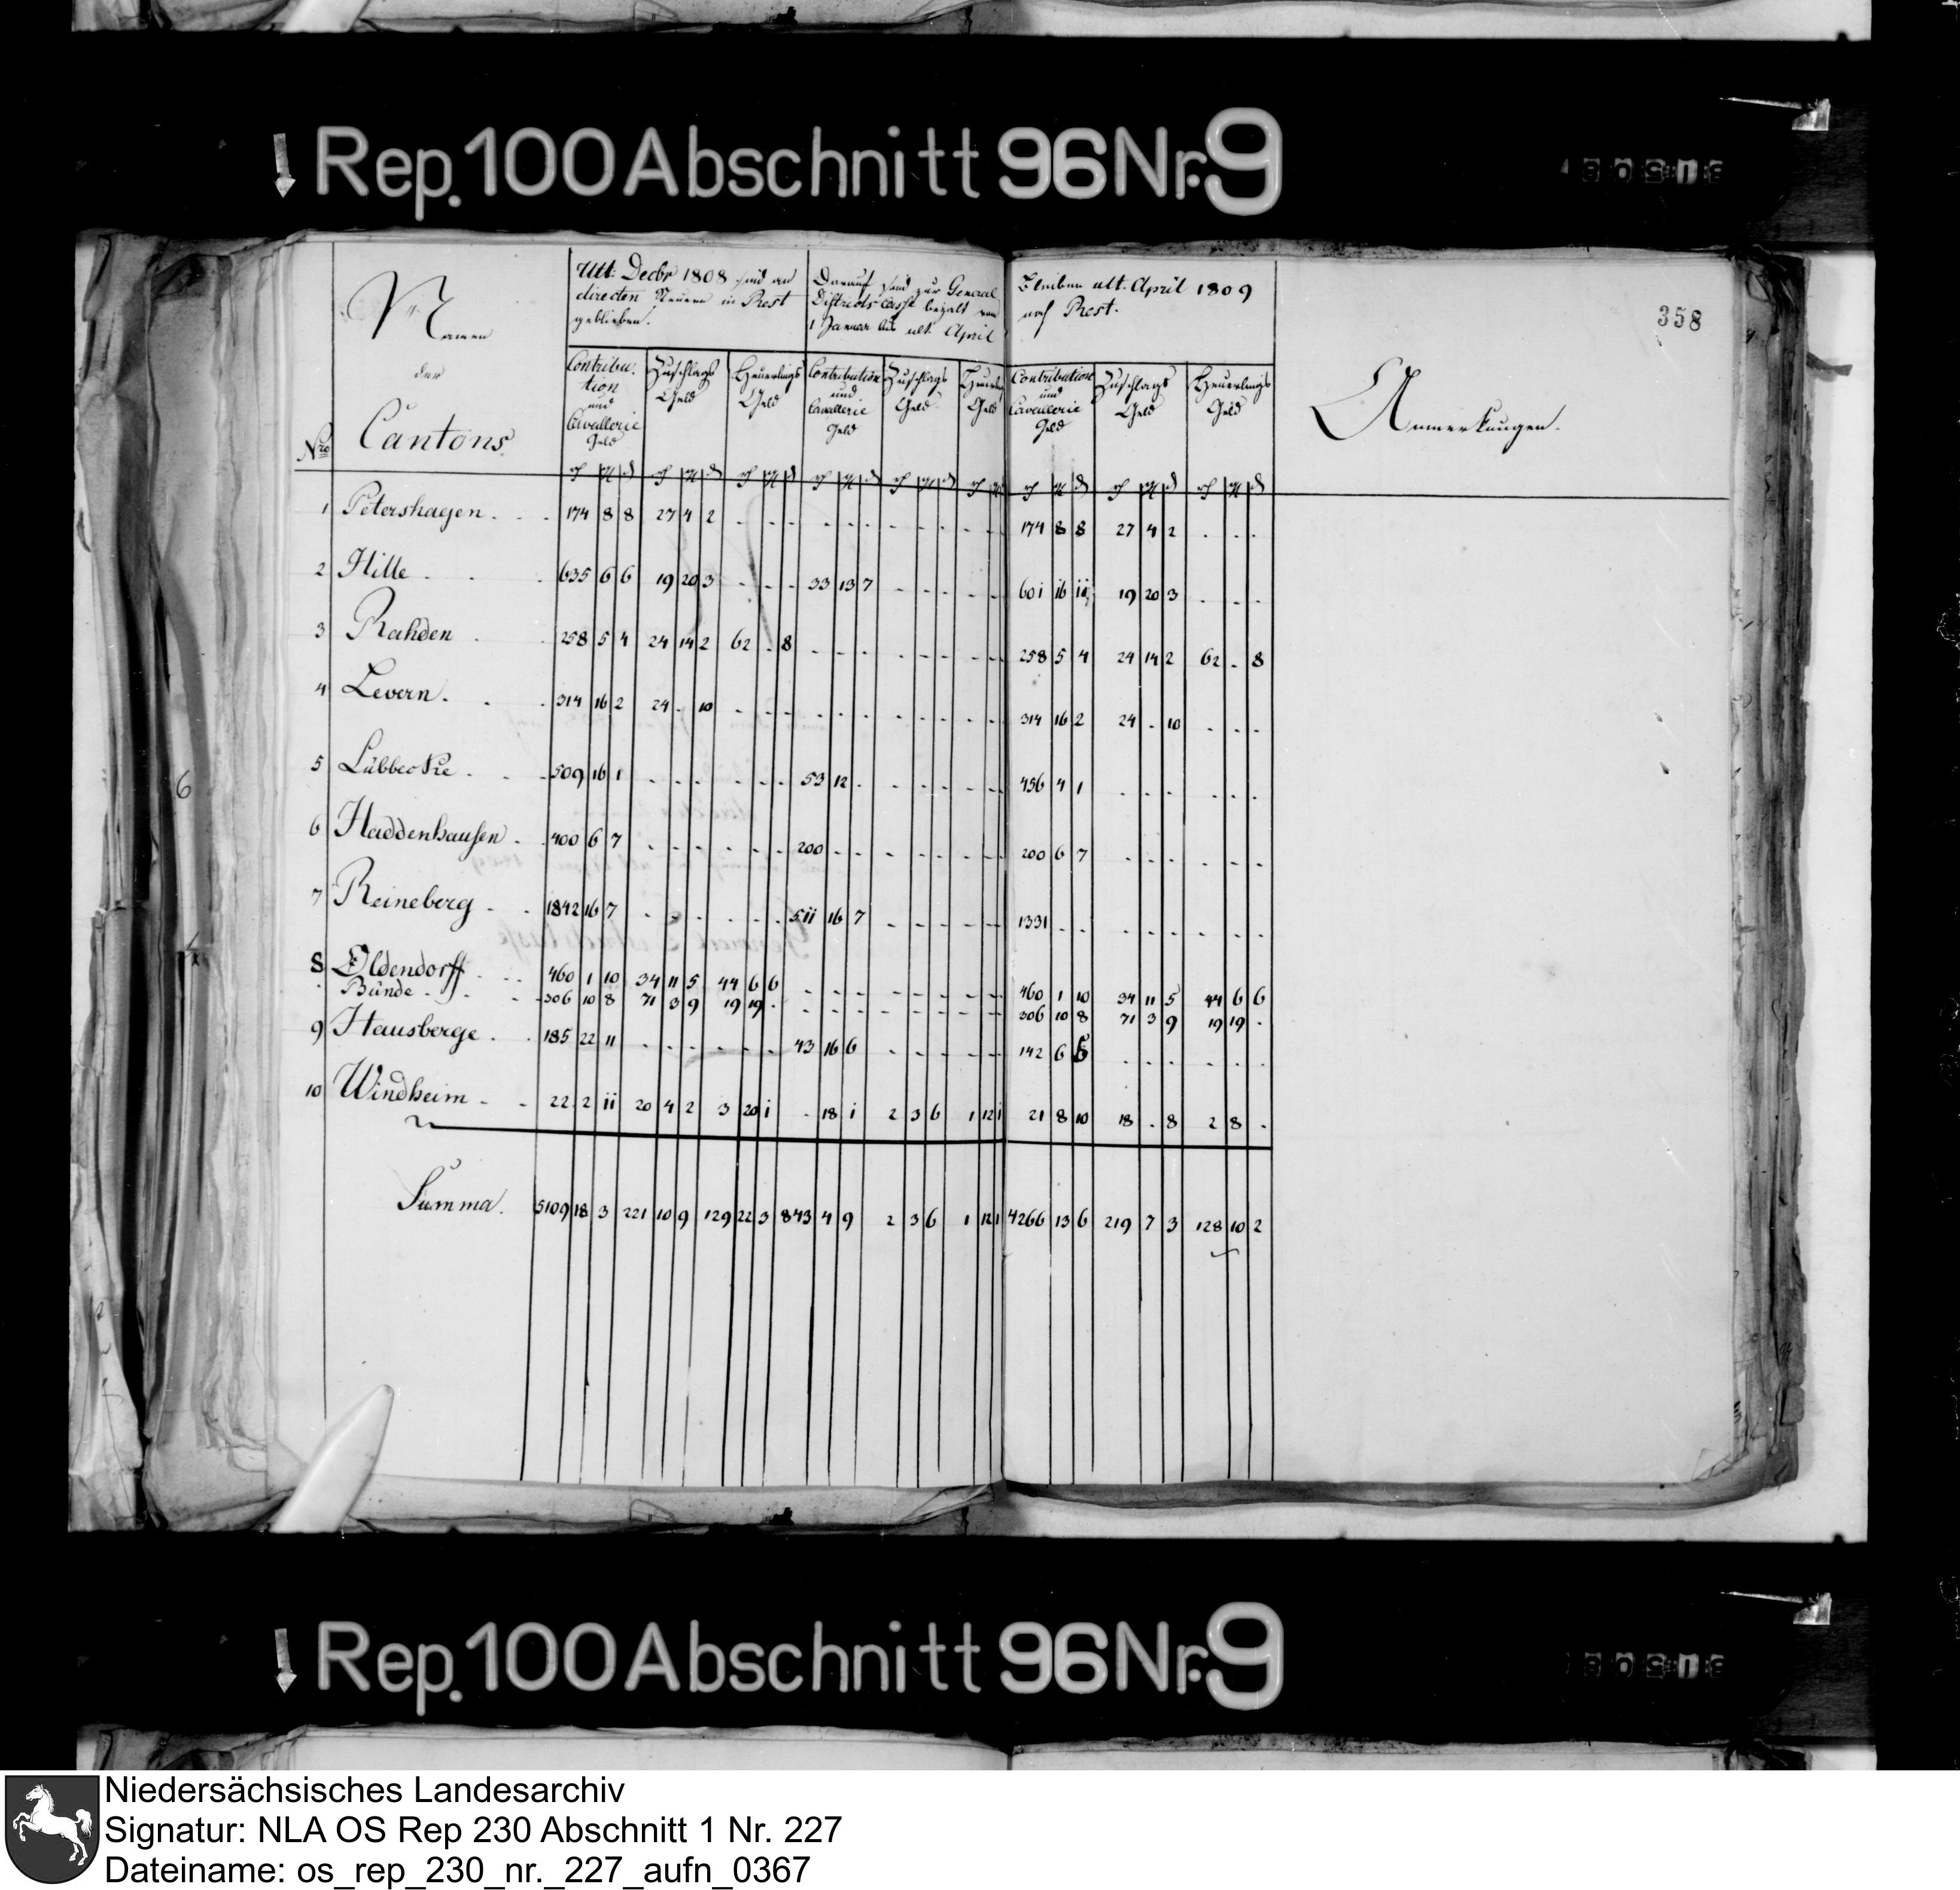 Rep. 100 Abschnitt 96 Nr. 9
358
Namen
der
Cantons.
Nro
Ult: Decbr 1808 sind an
directen Steuern in Rest
geblieben.
Darauf sind zur General
Districts Casse bezalt vom
1 Januar bis ult. April
Bleiben ult. April 1809
noch Rest.
Anmerkungen.
Contribu-
tion
und
Cavallerie
Geld
Zuschlags
Geld
Heuerlings
Geld
Contribution
und
Cavallerie
Geld
Zuschlags
Geld
Heuerlings
Geld
Contribution
und
Cavallerie
Geld
Zuschlags
Geld
Heuerlings
Geld
1 Petershagen . . . 174 8 8 27 4 2 . . . . . . . . . . . . 174 8 8 27 4 2 . . .
2 Hille . . . 635 6 6 19 20 3 . . . 33 13 7 . . . . . 601 16 11 19 20 3 . . .
3 Rahden . . 258 5 4 24 14 2 62 . 8 . . . . . . . . 258 5 4 24 14 2 62 . 8
4 Levern . . . 314 16 2 24 . 10 . . . . . . . . . . . 314 16 2 24 . 10 . . .
5 Lübbecke . . . 509 16 1 . . . . . . 53 12 . . . . . . 456 4 1 . . . . . .
6 Haddenhausen . . 400 6 7 . . . . . . 200 . . . . . . . 200 6 7 . . . . . .
7 Reineberg . . 1842 16 7 . . . . . . 511 16 7 . . . . . 1331 . . . . . . . .
8 Oldendorff . . . 460 1 10 34 11 5 44 6 6 . . . . . . . . 460 1 10 34 11 5 44 6 6
Bünde . . . 306 10 8 71 3 9 19 19 . . . . . . . . . 306 10 8 71 3 9 19 19 .
9 Hausberge . . 185 22 11 . . . . . . 43 16 6 . . . . . 142 6 5 . . . . . .
10 Windheim . . 22 2 11 20 4 2 3 20 1 . 18 1 2 3 6 1 12 1 21 8 10 18 . 8 2 8 .
Summa. 5109 18 3 221 10 9 129 22 3 843 4 9 2 3 6 1 12 1 4266 13 6 219 7 3 128 10 2
6
Rep. 100 Abschnitt 96 Nr. 9
Niedersächsisches Landesarchiv
Signatur: NLA OS Rep 230 Abschnitt 1 Nr. 227
Dateiname: os_rep_230_nr._227_aufn_0367